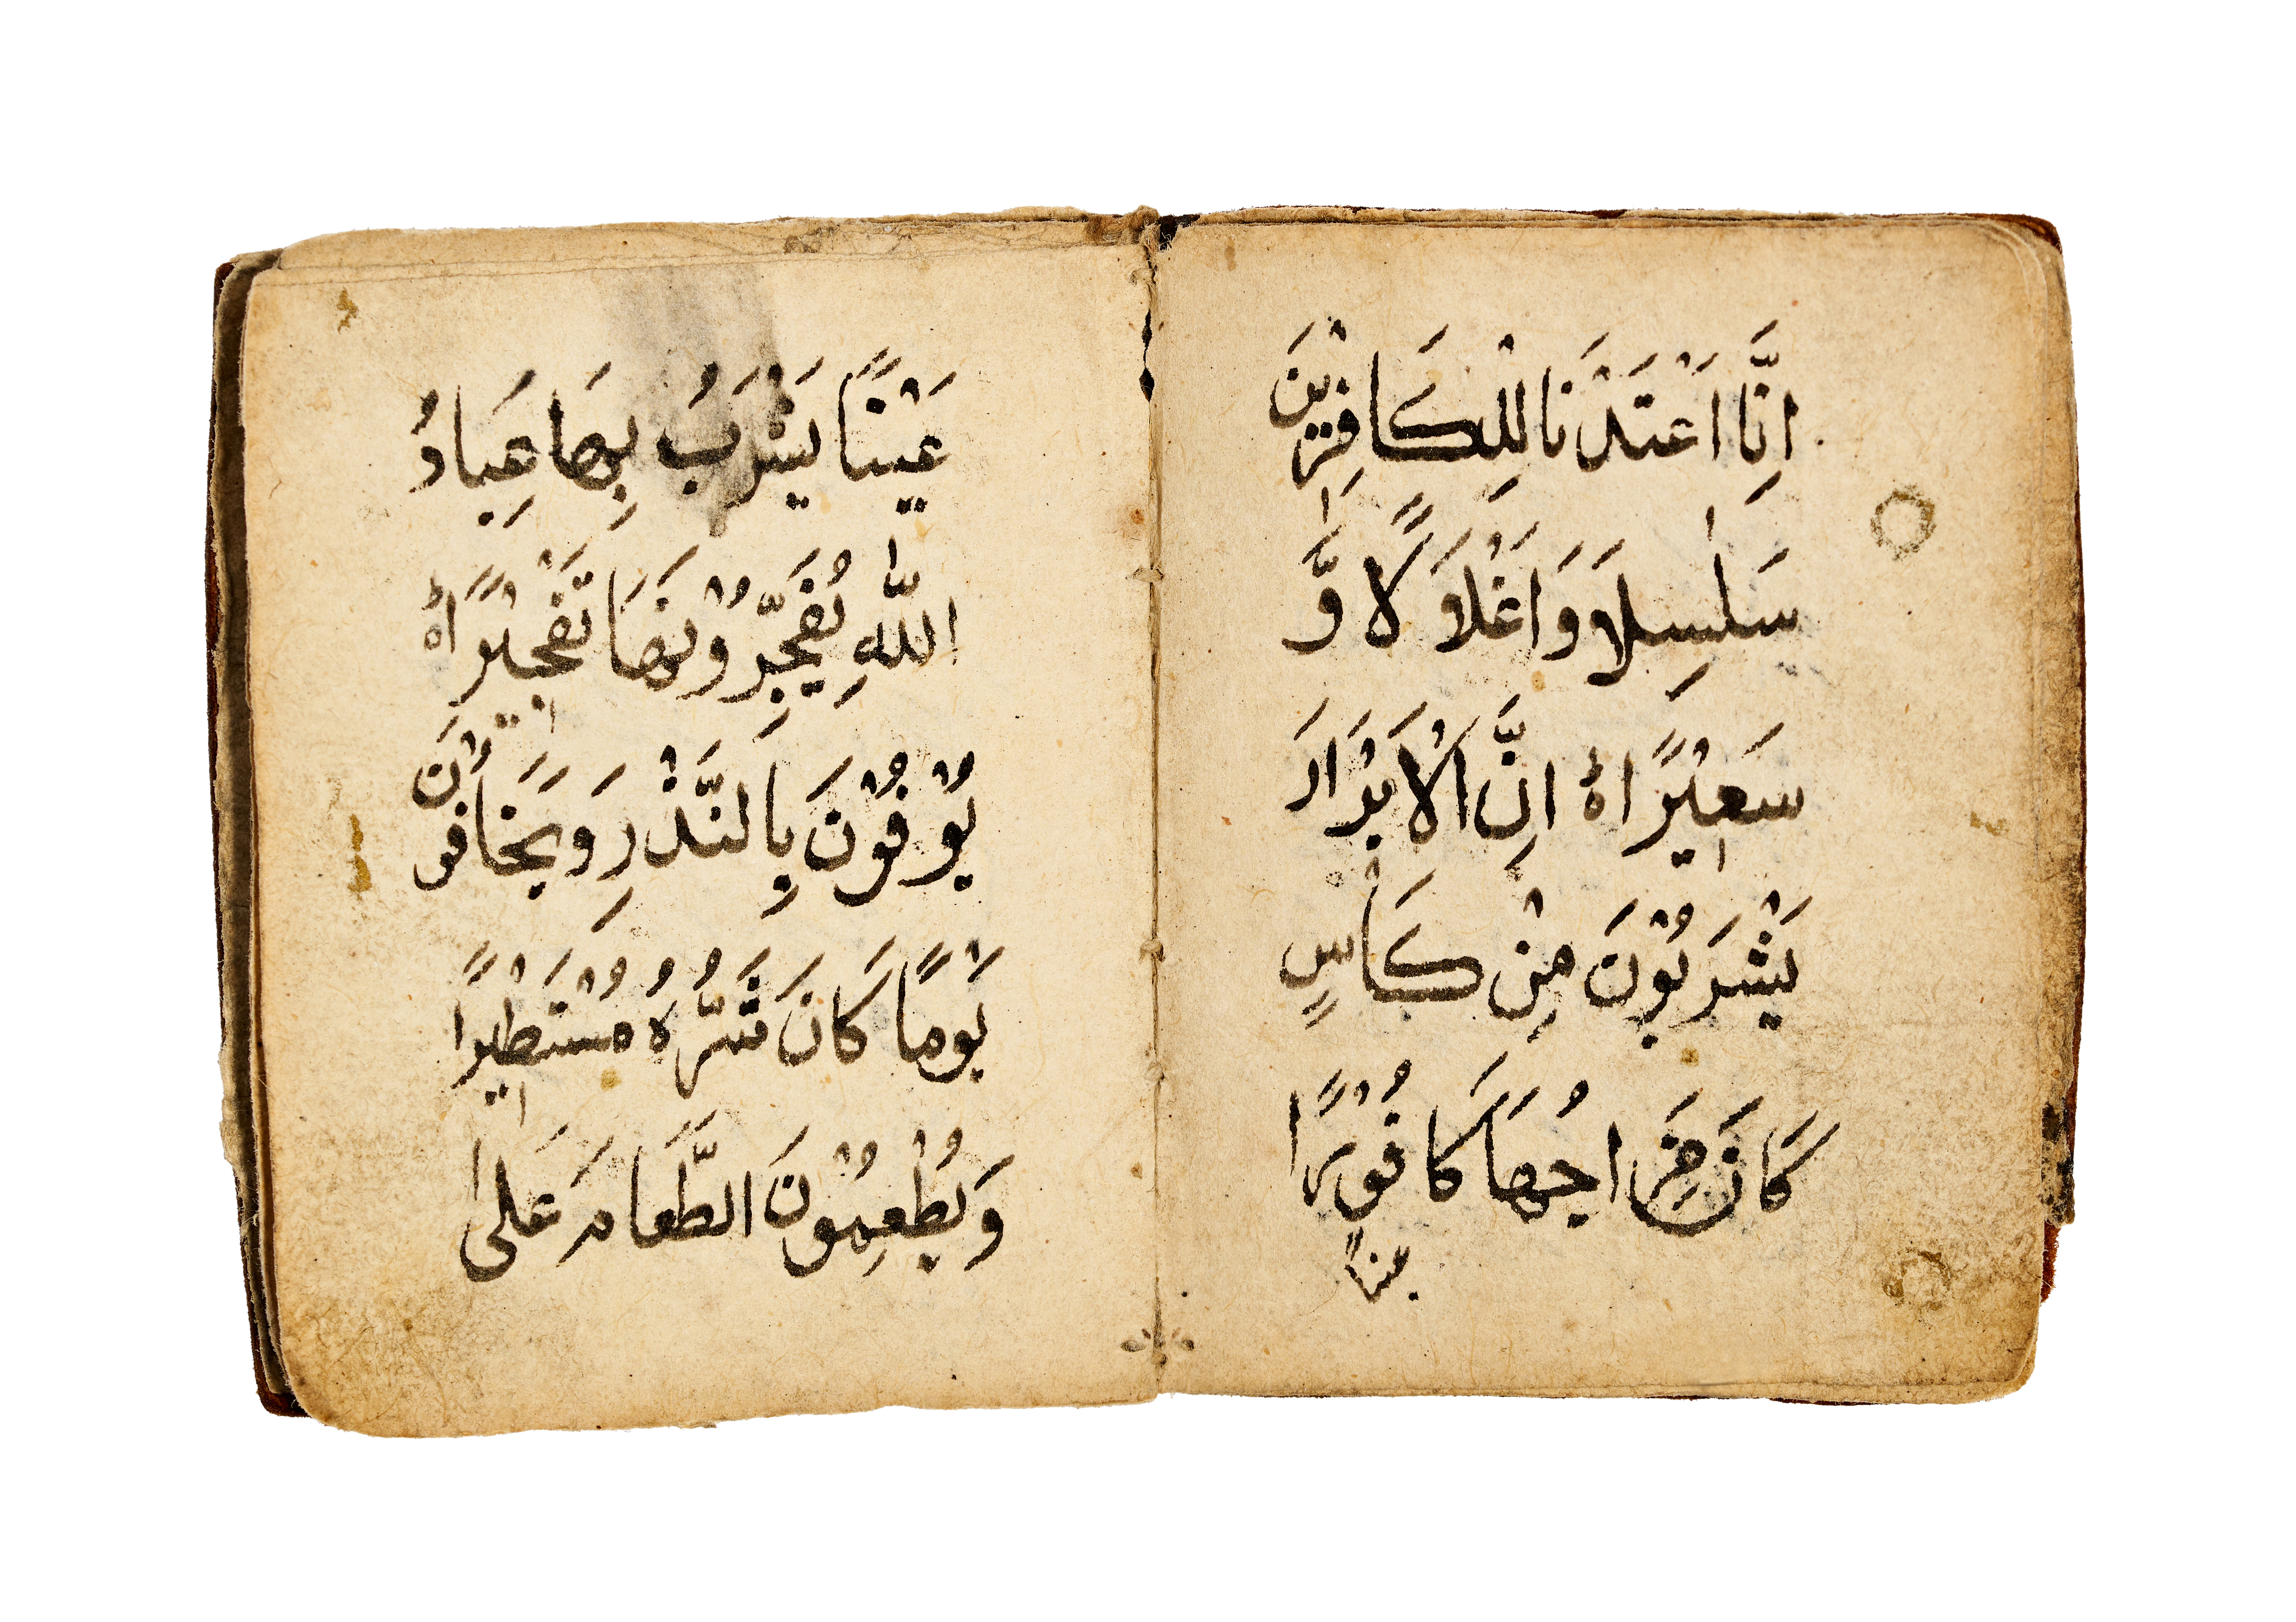 اِنَّا اَعْتَدْنَا لِلْكَافِرِيْنَ
سَلٰسِلَا وَاَغْلَاَ لًا وَّ
سَعِيْرًا ۀ اِنَّ الْاَبْرَارَ
يَشْرَبُوْنَ مِنْ كَاْسٍ
كَانَ مِزَاجُهَا كَافُوْرًا
عينا
عَيْنًا يَشْرَبُ بِهَا عِبَادُ
اللّٰهِ يُفَجِّرُوْنَهَا تَفْجِيْرًا ۀ
يُوْفُوْنَ بِالنَّذْرِ وَيَخَافُوْنَ
يَوْمًا كَانَ شَرُّهُ مُسْتَطِيْرًا
وَيُطْعِمُوْنَ الطَّعَامَ عَلٰى